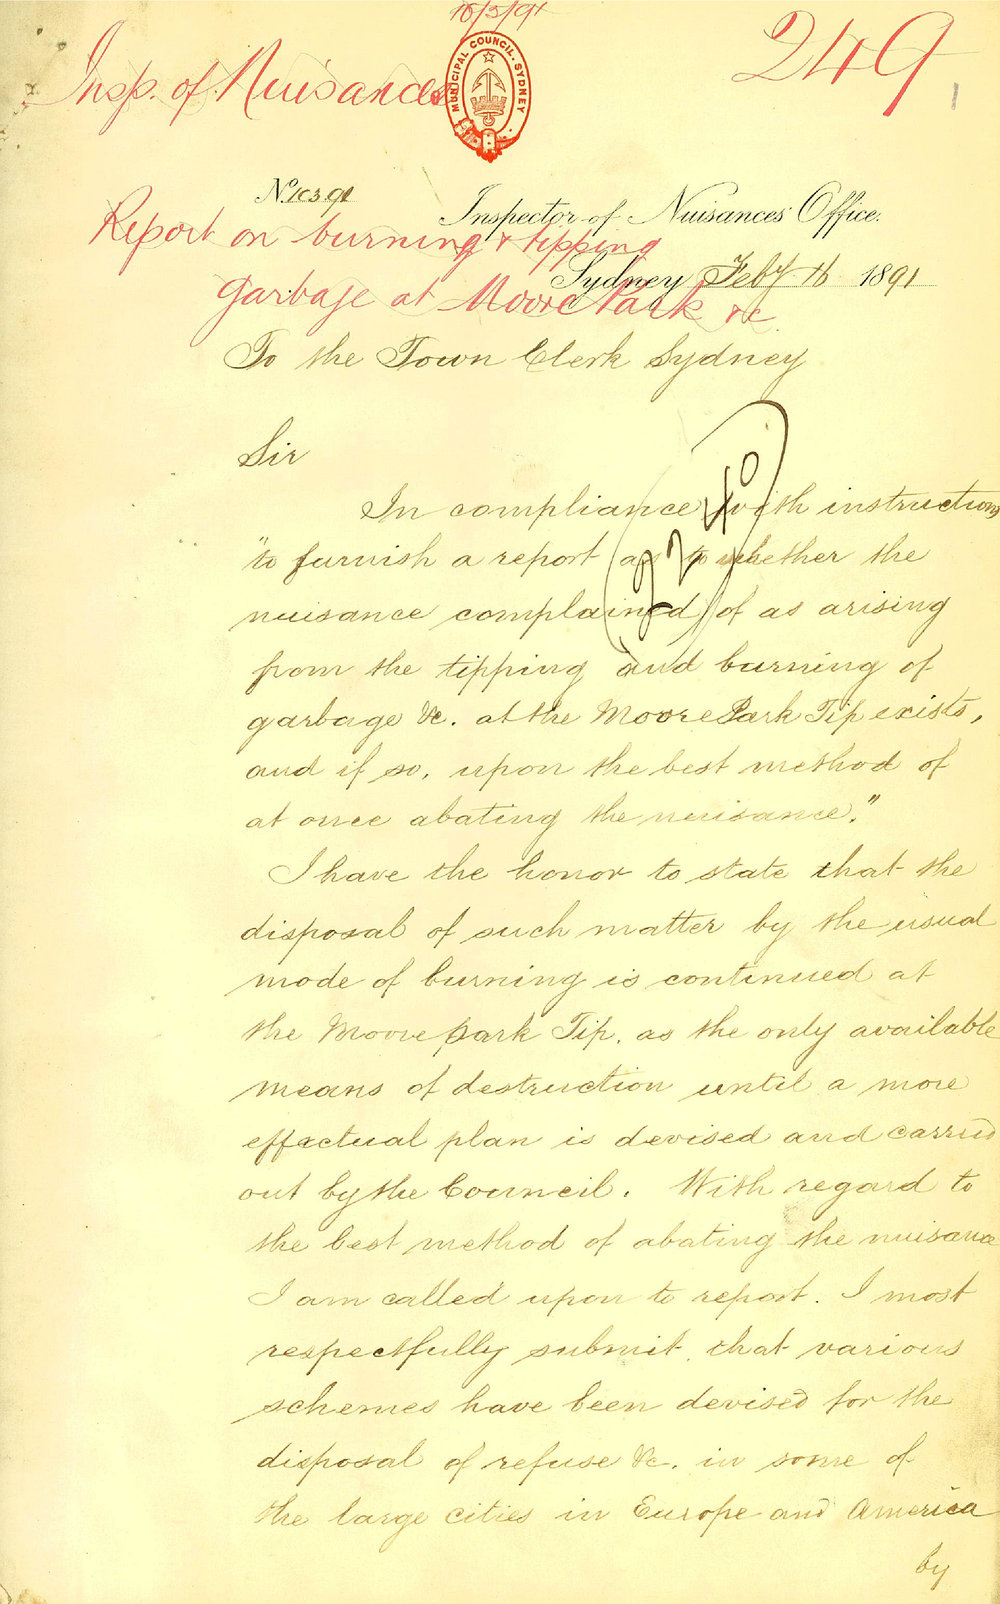 16/3/91
Insp. of Nuisances
249
MUNICIPAL COUNCIL. SYDNEY
No.
Inspector of Nuisances Office.
Report on burning & tipping
Sydney Feby 16 1891
Garbage at Moore Park &c
To the Town Clerk Sydney
Sir
In compliance with instructions
"to furnish a report as to whether the
nuisance complained of as arising
from the tipping and burning of
garbage &c. at the Moore Park Tip exists,
and if so, upon the best method of
at once abating the nuisance."
I have the honor to state that the
disposal of such matter by the usual
mode of burning is continued at
the Moore park Tip, as the only available
means of destruction until a more
effectual plan is devised and carried
out by the Council. With regard to
the best method of abating the nuisance
I am called upon to report. I most
respectfully submit, that various
schemes have been devised for the
disposal of refuse &c. in some of
the large cities in Europe and America
by